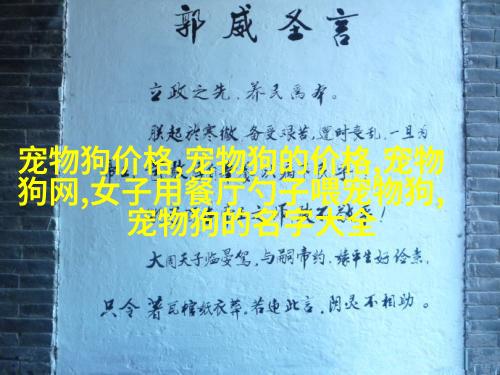 郭威圣言
立政之先,养民为本。
朕起於寒微,备受艰苦,遭时丧乱,一旦为
宠物狗价格,宠物狗的价格,宠物
狗网,女子用餐厅勺子喂宠物狗,
宠物狗的名字大全
大周天子临晏驾,与嗣帝约,缘平生好俭素,
只令著瓦棺纸衣葬。若违此言,阴灵不相助。